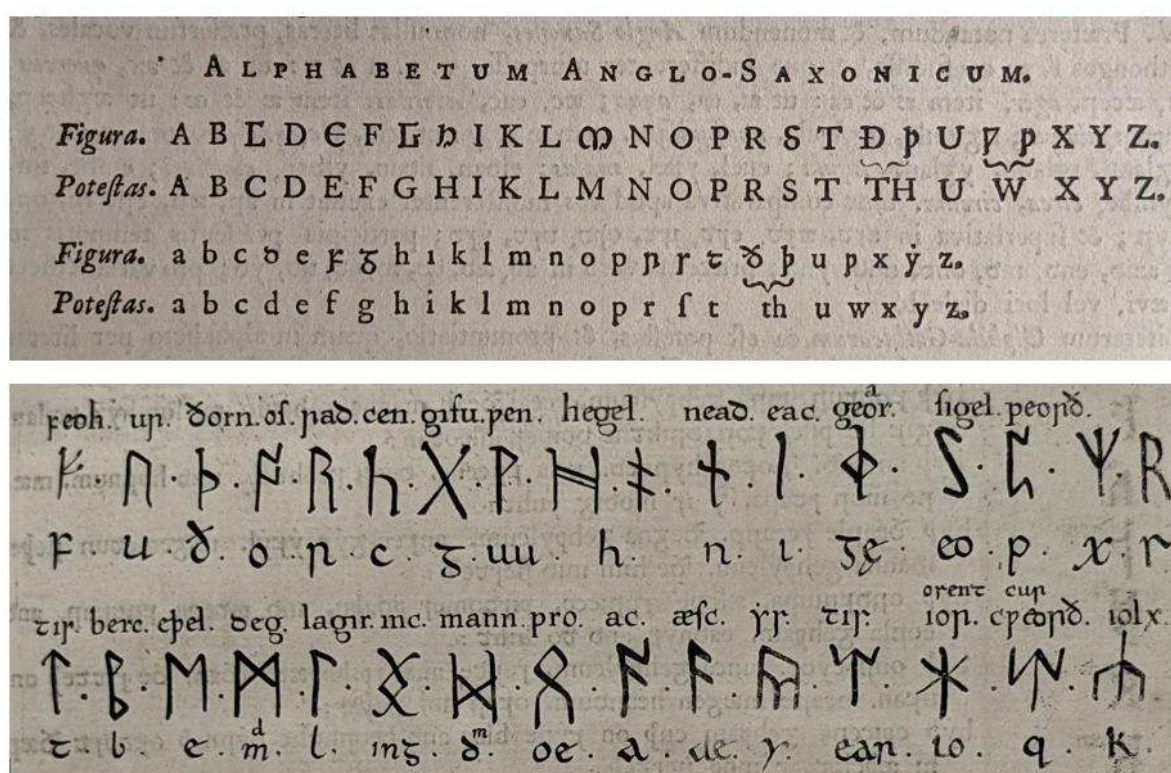 ALPHABETUM ANGLO-SAXONICUM.
Figura. A B Ꞇ D Є F Ᵹ Һ I K L ꟿ N O P R S T Ð þ U Ƿ ƿ X Y Z.
Poteſtas. A B C D E F G H I K L M N O P R S T TH U W X Y Z.
Figura. a b c ꝺ e ꝼ ᵹ h ı k l m n o p ꞃ ꞅ ꞇ ð þ u ƿ x ẏ z.
Poteſtas. a b c d e f g h i k l m n o p r ſ t th u w x y z.
ꝼeoh. uꞃ. ðorn. oſ. ꞃað. cen. gıfu. ƿen. hegel. neað. eac. geoꞃ. ſıgel. peoꞃð.
ᚠ · ᚢ · ᚦ · ᚩ · ᚱ · ᚳ · ᚷ · ᚹ · ᚻ · ᚾ · ᛁ · ᛄ · ᛋ · ᛈ · ᛉ
ꝼ · u · ð · o · ꞃ · c · ᵹ · uu · h · n · ı · ᵹę · eo · p · x · ꞅ
orenꞇ cuꞃ
ꞇıꞃ. berc. eþel. ꝺeg. lagꞃ. ınc. mann. pro. ac. æſc. ẏꞃ. ꞇıꞃ. ıoꞃ. cƿeoꞃð. ıolx.
ᛏ · ᛒ · ᛖ · ᛗ · ᛚ · ᛝ · ᛞ · ᛟ · ᚪ · ᚫ · ᚣ · ᛠ · ᛡ · ᛢ · ᛣ
ꞇ · b · e · m · l · ınᵹ · ð · oe · a · ae · y · eaꞃ · ıo · q · k ·